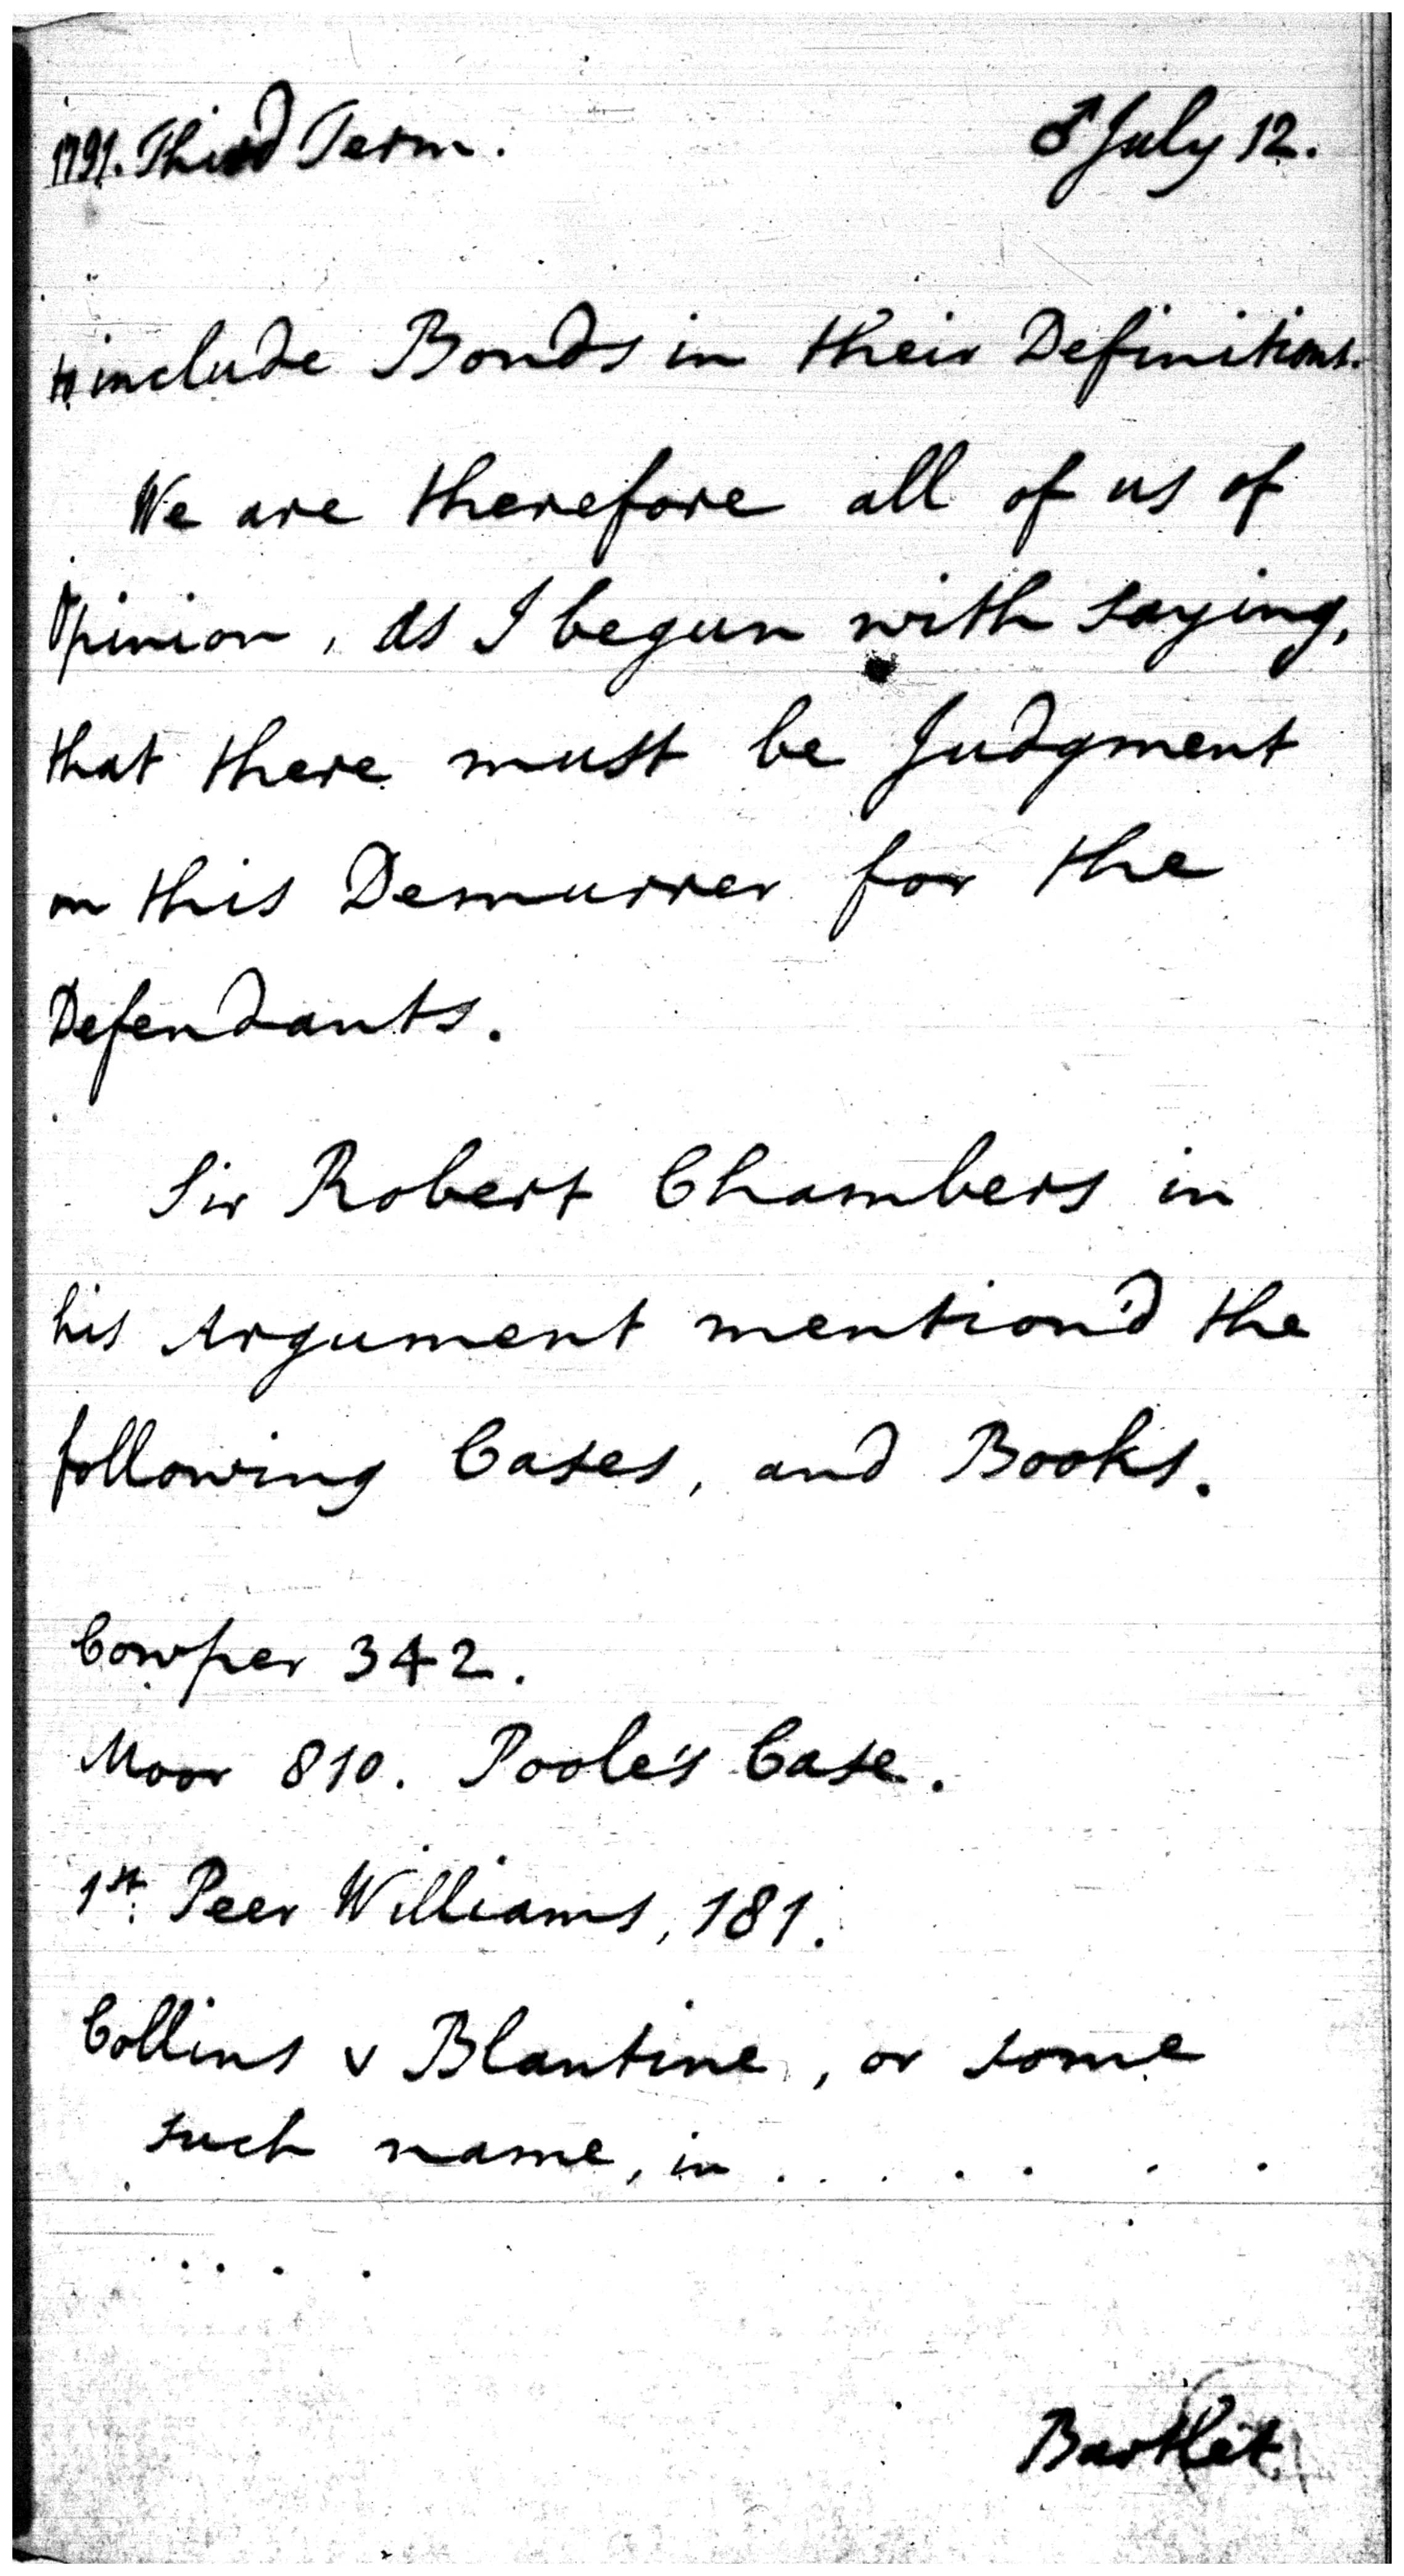 1791. Third Term. ♂ July 12.
to include Bonds in their Definitions.
We are therefore all of us of
Opinion, as I begun with saying,
that there must be Judgment
on this Demurrer for the
Defendants.
Sir Robert Chambers in
his Argument mention'd the
following Cases, and Books.
Cowper 342.
Moor 810. Poole's Case.
1st. Peer Williams, 181.
Collins v Blantine, or some
such name, in . . . . . .
. . . . .
Bartlet